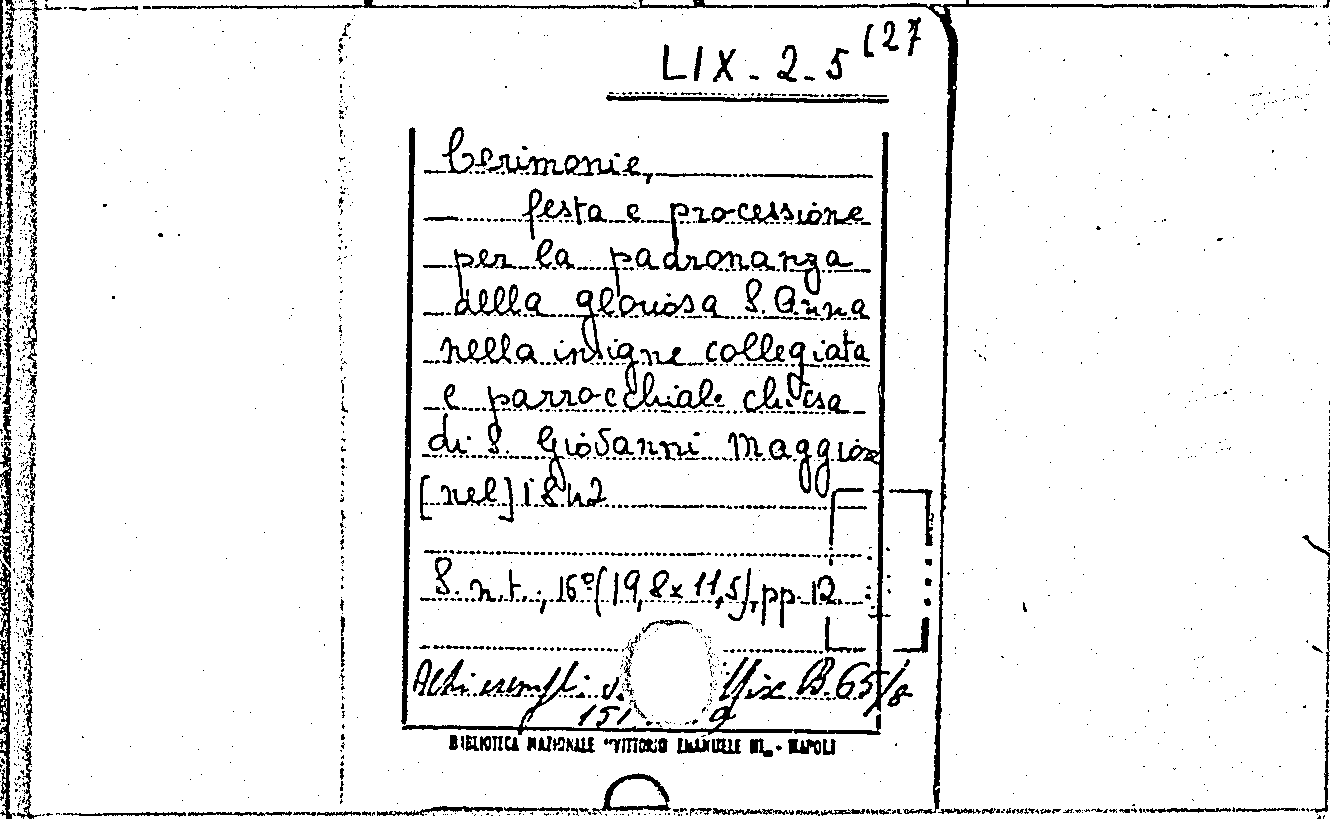 LIX-2-5 (27
Cerimonie,
festa e processione
per la padronanza
della gloriosa S. Anna
nella insigne collegiata
e parrocchiale chiesa
di S. Giovanni Maggiore
[nel] 1842
S. n. t., 16º (19,8 x 11,5), pp. 12
Altri esempl. v. Misc B. 65/8
151 9
BIBLIOTECA NAZIONALE "VITTORIO EMANUELE III„ - NAPOLI